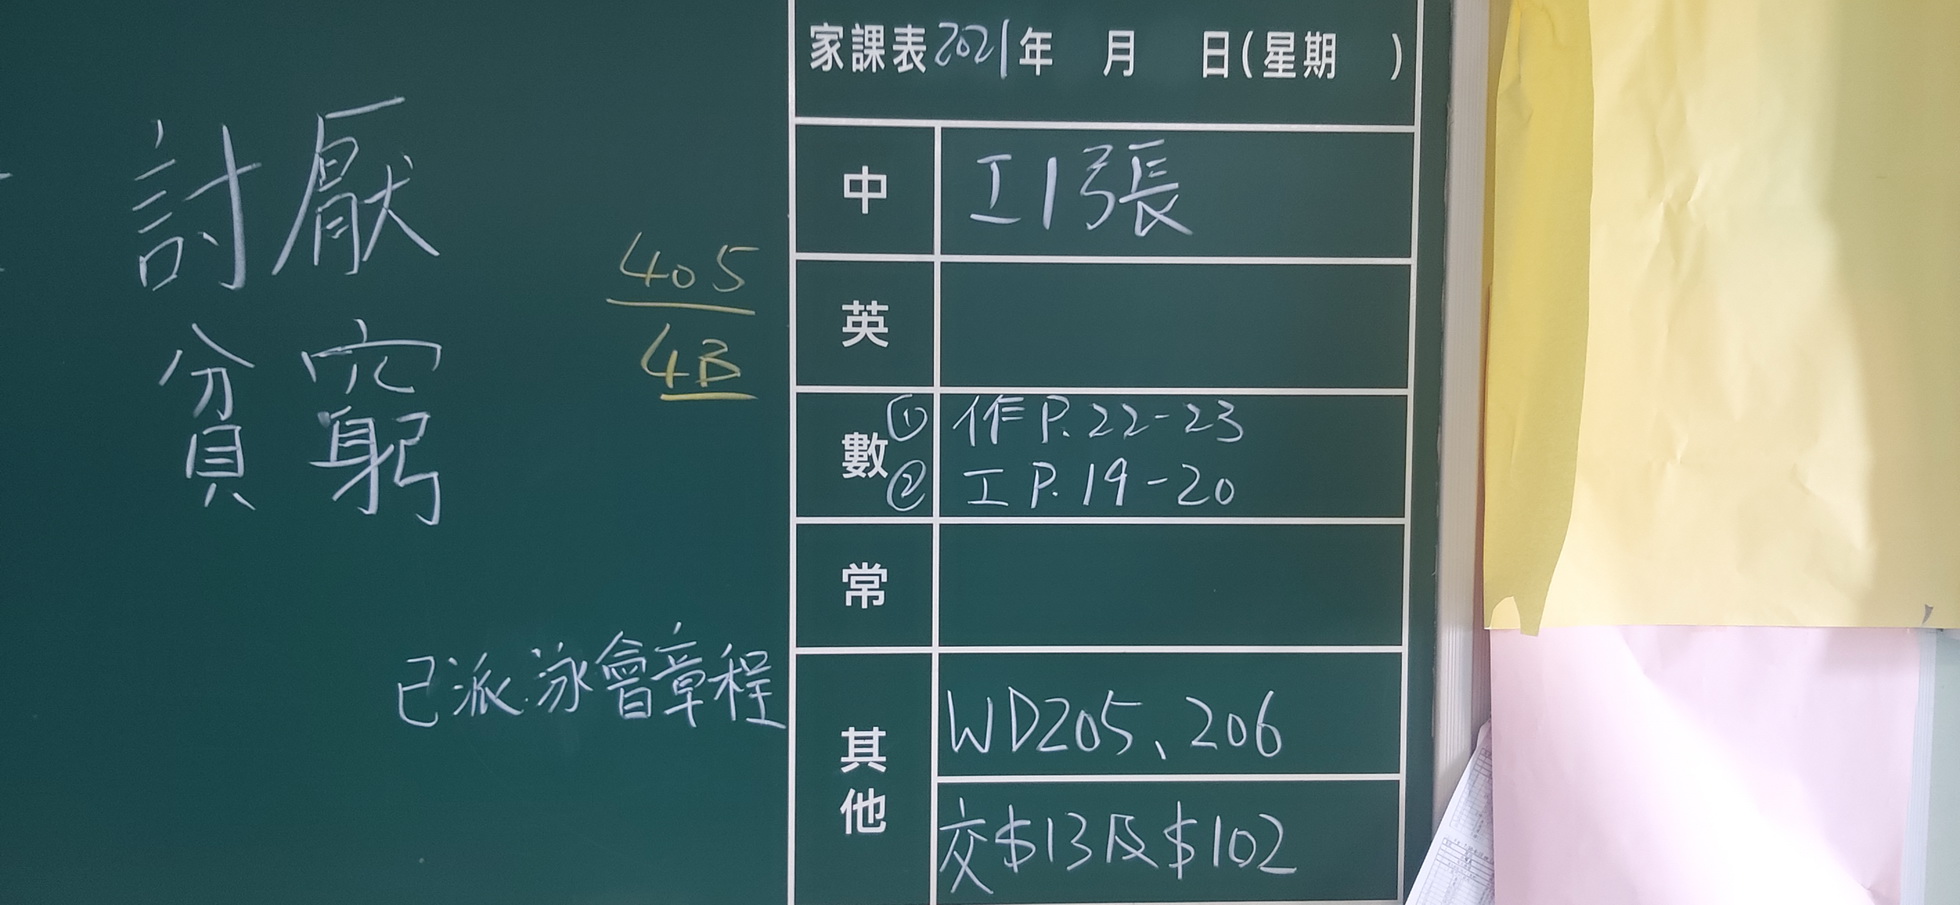 討厭
貧窮
405
4B
已派泳會章程
家課表2021年 月 日(星期 )
中 工1張
英
數 ① 作P.22-23
② 工P.19-20
常
其他 WD205、206
交$13及$102